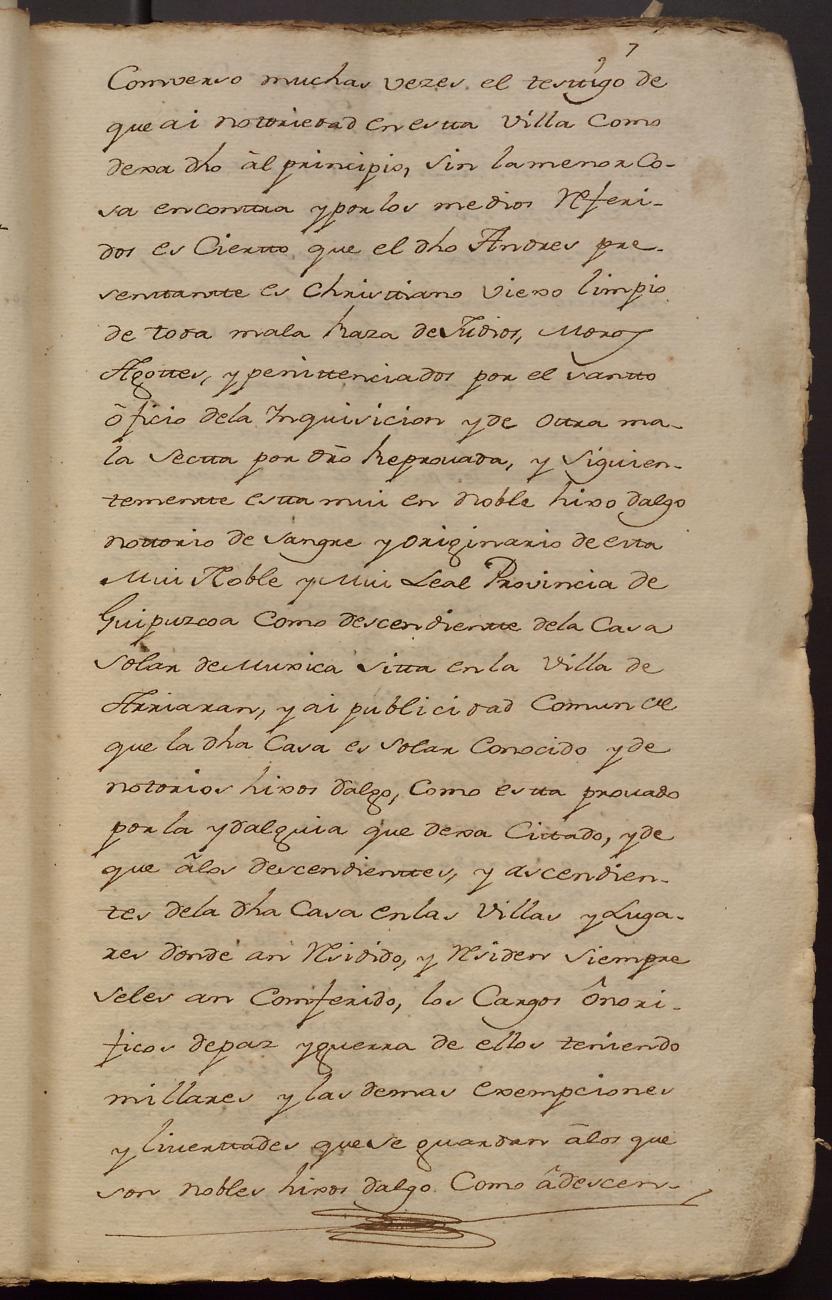 7
Converso muchas vezes el testigo de
que ai notoriedad en estta villa como
dexa dho âl principio, sin la menor co-
sa en conttra y por los medios Referi-
dos es Ciertto que el dho Andres pre-
senttantte es Christtiano viexo limpio
de toda mala Raza de Judios, Moros
Agottes, y penittenciados por el santto
ôficio dela Inquisicion y de ottra ma-
la Sectta por dro Reprovada, y siguien-
temente estta mui en noble hixo dalgo
nottorio de sangre y originario de esta
Mui Noble y Mui Leal Provincia de
Guipuzcoa Como descendientte dela Casa
solar de Muxica sitta en la villa de
Arriaran, y ai publicidad Comun de
que la dha Casa es solar Conocido y de
notorios hixos dalgo, Como estta provado
por la ydalguia que dexa Cittado, y de
que âlos descendienttes, y ascendien-
tes dela dha Casa en las villas y Luga-
res donde an Residido, y Residen siempre
seles an Comferido, los Cargos ônori-
ficos de paz y guerra de ellos teniendo
millares y las demas exempciones
y liverttades que se guardan âlos que
son nobles hixos dalgo Como âdescen-